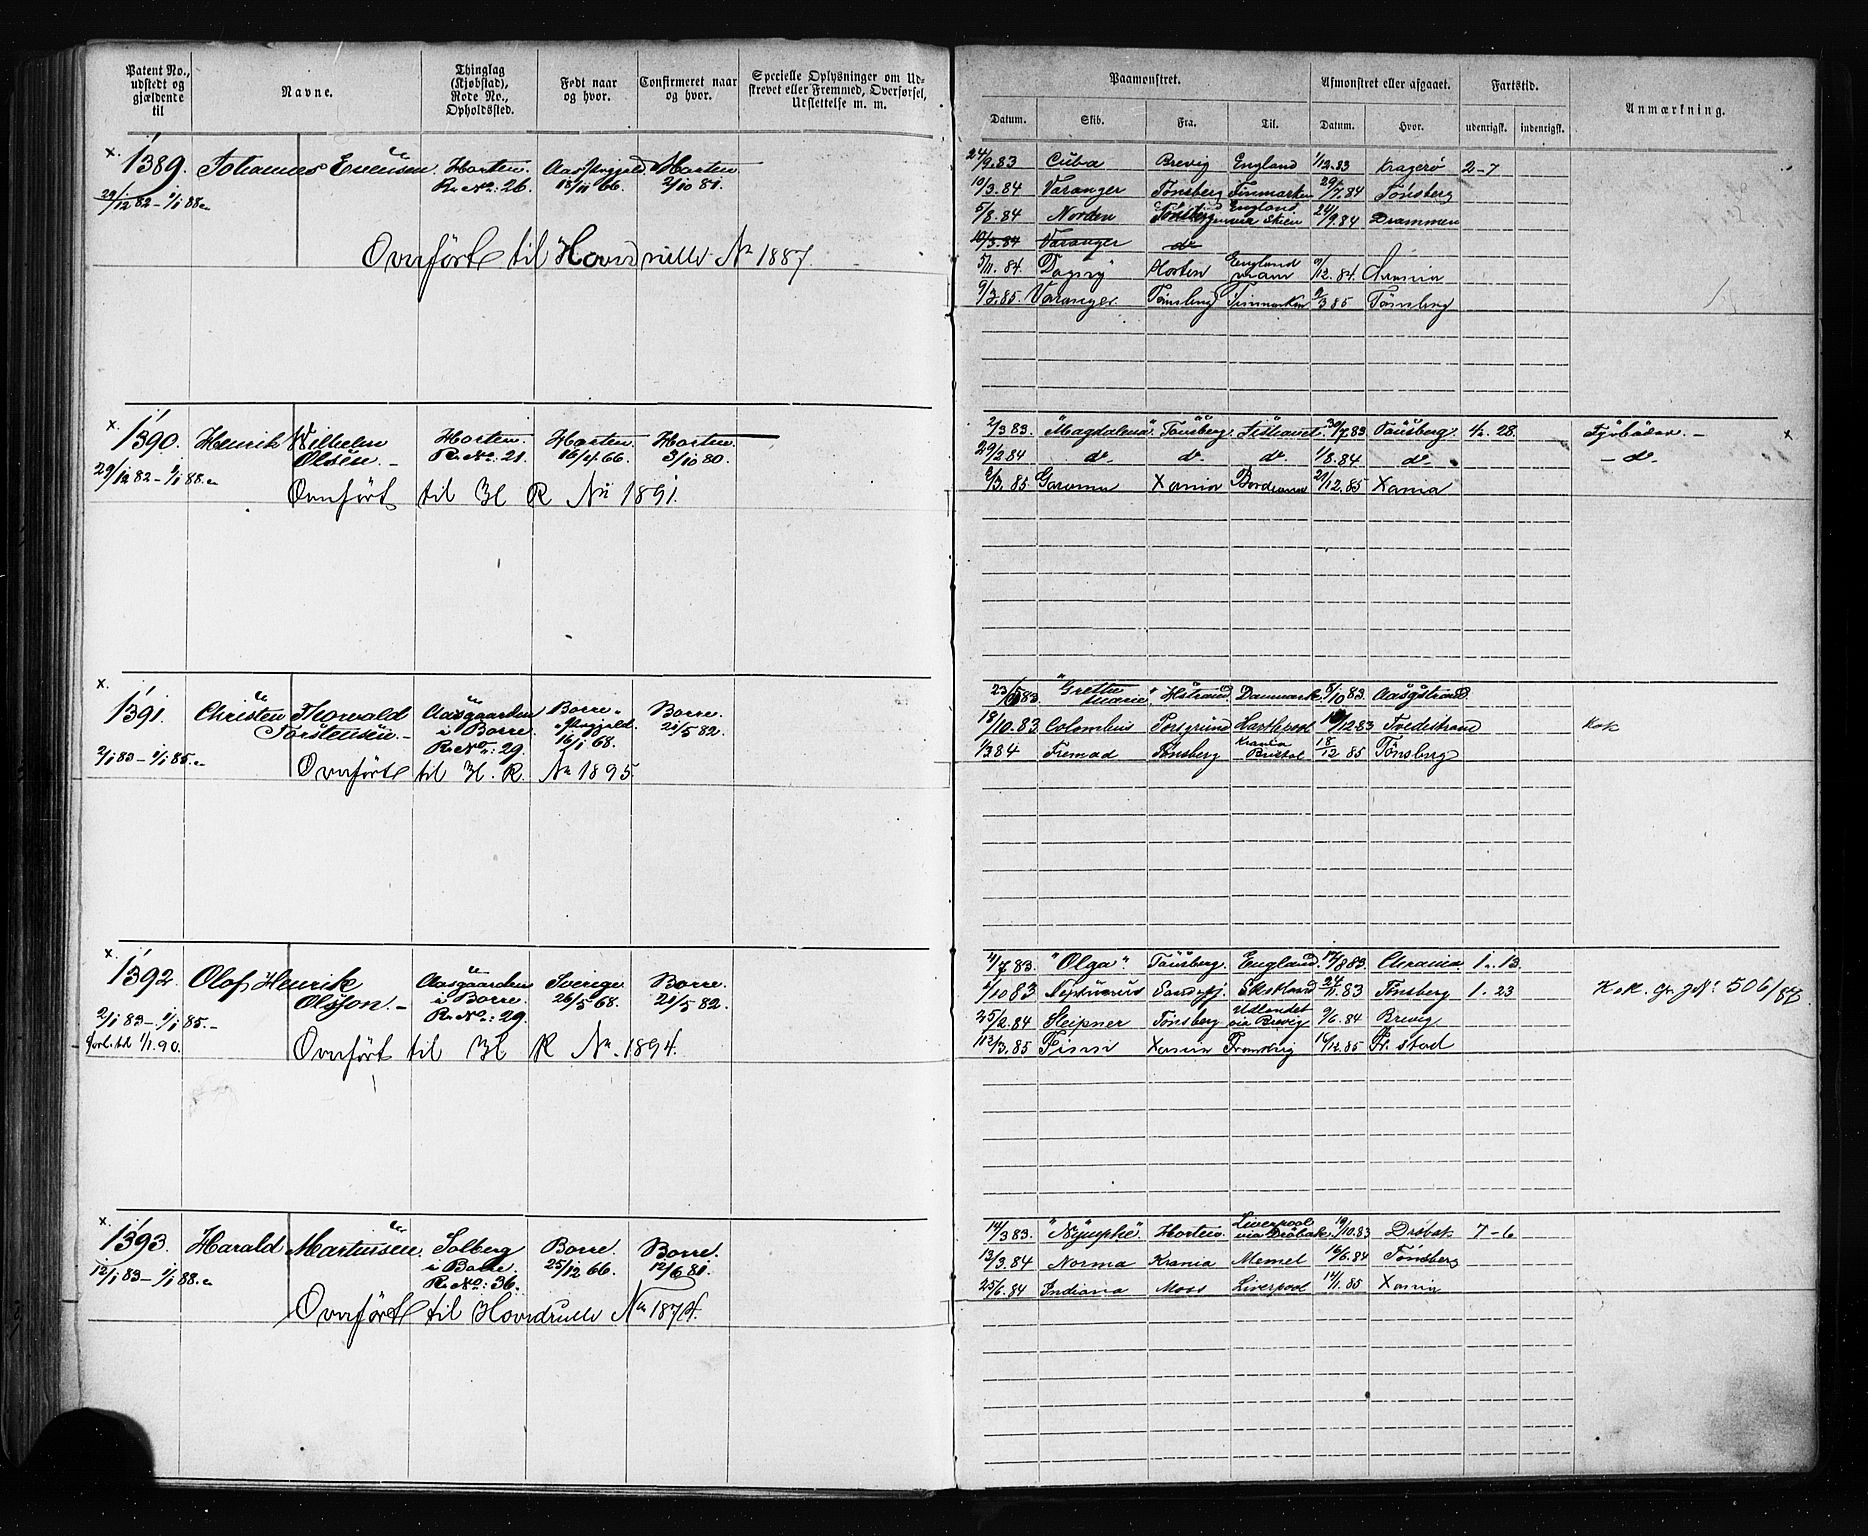 Patent No., udstedt og gjældende til
Navne.
Thinglag (Kjøbstad), Rode No., Opholdssted.
Født naar og hvor.
Confirmeret naar og hvor.
Specielle Oplysninger om Udskrevet eller Fremmed, Overførsel, Udslettelse m. m.
Paamønstret.
Afmønstret eller afgaaet.
Fartstid.
Anmærkning.
Datum. Skib. Fra. Til. Datum. Hvor. udenrigsk. indenrigsk.
x. 1389. Johannes Evensen. Horten. Horten
R. No: 26. 18/11 66. 2/10 81.
29/12 82 - 1/1 88
Overført til Hovedrulle No 1887.
24/9.83 Cuba Brevig England 1/12.83 Kragerø 2-7
10/3.84 Varanger Tønsberg Finmarken 29/7.84 Tønsberg
5/8.84 Norden England 24/9.84 Drammen
10/3.84 Varanger do
5/11.84. Dagny Horten England
9/3.85. Varanger Tønsberg Finmarken 85 Tønsberg
x. 1390. Henrik Wilhelm Horten. Horten. Horten.
Olsen. R. No: 21. 16/4.66. 3/10 80.
29/12 82 - 1/1 88
Overført til Hl R No 1891.
2/3 83. "Magdalena" Tønsberg. Ishavet. 30/7.83 Tønsberg. 4 28.
29/2 84 do. do. do. 1/8.84. do. - do -
6/3. 85 Garonne Xania 21/12.85 Xania
x. 1391. Christen Thorvald Aasgaarden Borre Borre.
Torstensen. i Borre. 21/5 82.
R. No: 29. 16/1 68.
2/1 83 - 1/1 85.
Overført til Hl. R. No 1895.
23/6 83. "Grethe Marie" Danmark. 8/10 83. Aasgstrand
18/10.83 Colombus Porsgrund Hartlepool 12.83 Tvedestrand Kok
13 84 Fremad Tønsberg Krania Bristol 18/12 85 Tønsberg
x. 1392. Olaf Henrik Aasgaarden Sverige Borre.
Olsson. i Borre. 26/5 68. 21/5 82.
R. No: 29.
2/1 83 - 1/1 85.
forl. til 1/1.90.
Overført til Hl R No 1894.
7.83. "Olga". Tønsberg. England. 17/8 83. Chrania. 1. 13.
10 83 Neptunus Sandefj. 83 Tønsberg 1. 23
25/2.84 Heipner Tønsberg Udlandet via Brevig 9/6.84 Brevig
3.85 Xania 12.85 Fr. stad
506/87
x. 1393. Harald Martinsen. Solberg Borre. Borre.
i Borre. 25/12 66. 12/6 81.
R. No: 36.
12/1 83 - 1/1 88.
Overført til Hovedrulle No 1874.
14/3 83. "Nymphe" Horten Liverpool via Drøbak. 19/10.83 Drøbak 7-6
13/3.84 Norma Krania Memel 16/6.84 Tønsberg
25/6.84 Indiana Moss Liverpool 14/1.85 Xania